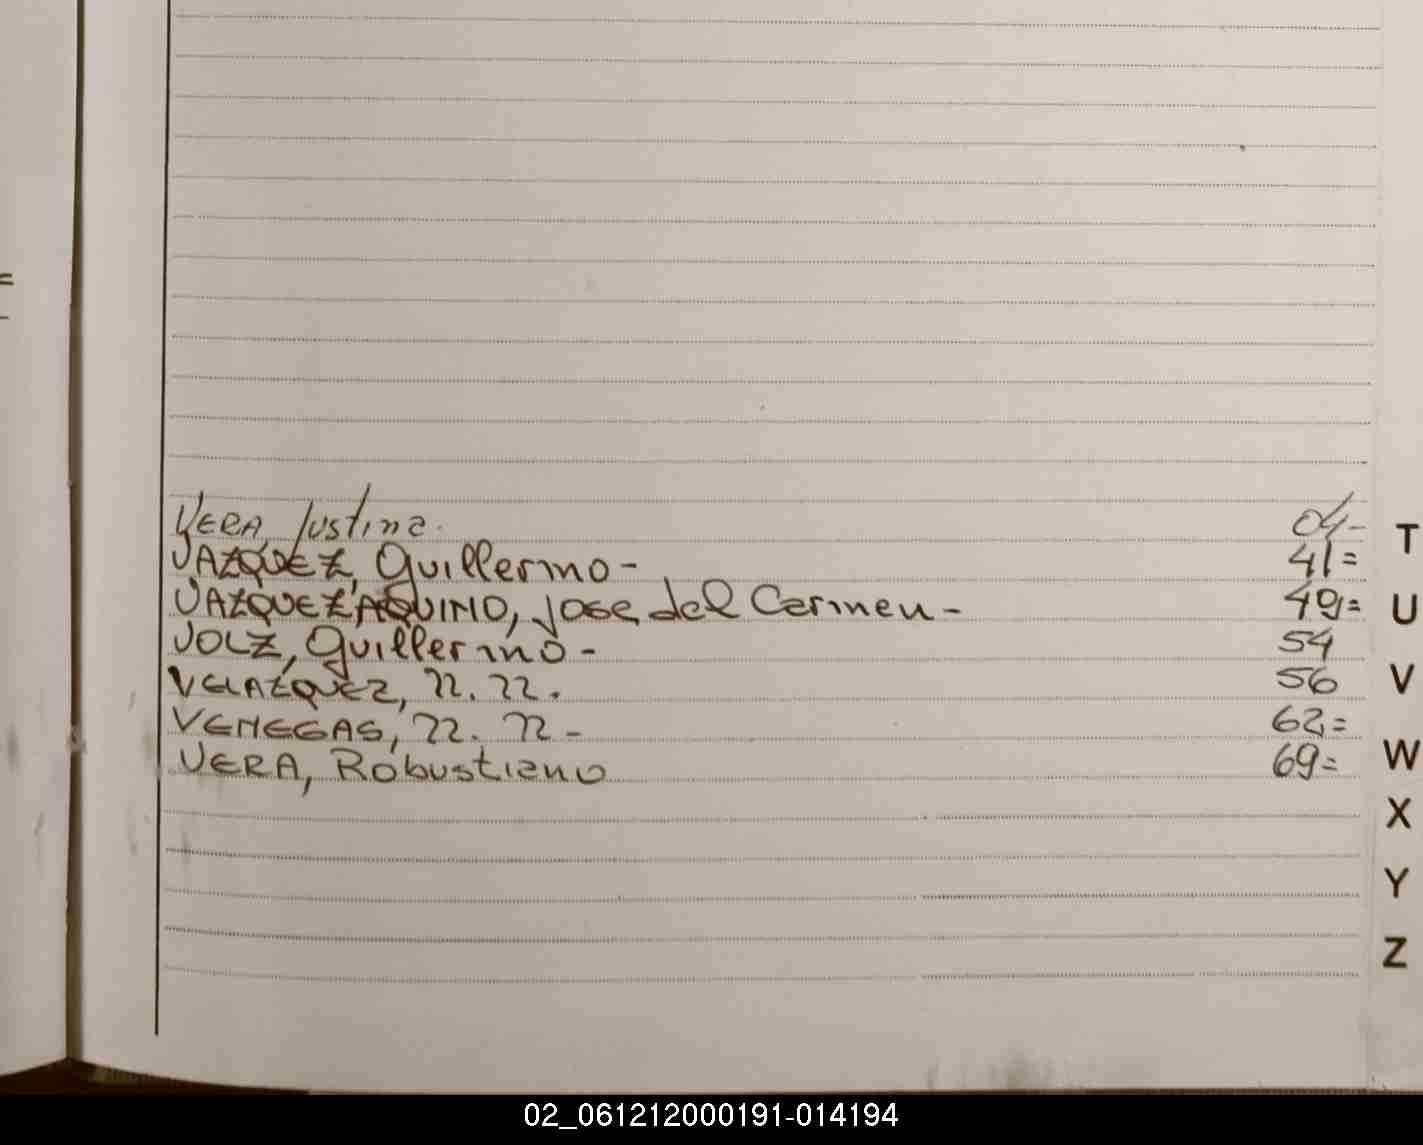 VERA, Justina. 04-
VAZQUEZ, Guillermo - 41=
VAZQUEZ AQUINO, Jose del Carmen - 49=
VOLZ, Guillermo - 54
VELAZQUEZ, N. N. 56
VENEGAS, N. N - 62=
VERA, Robustiano 69=
T
U
V
W
X
Y
Z
02_061212000191-014194